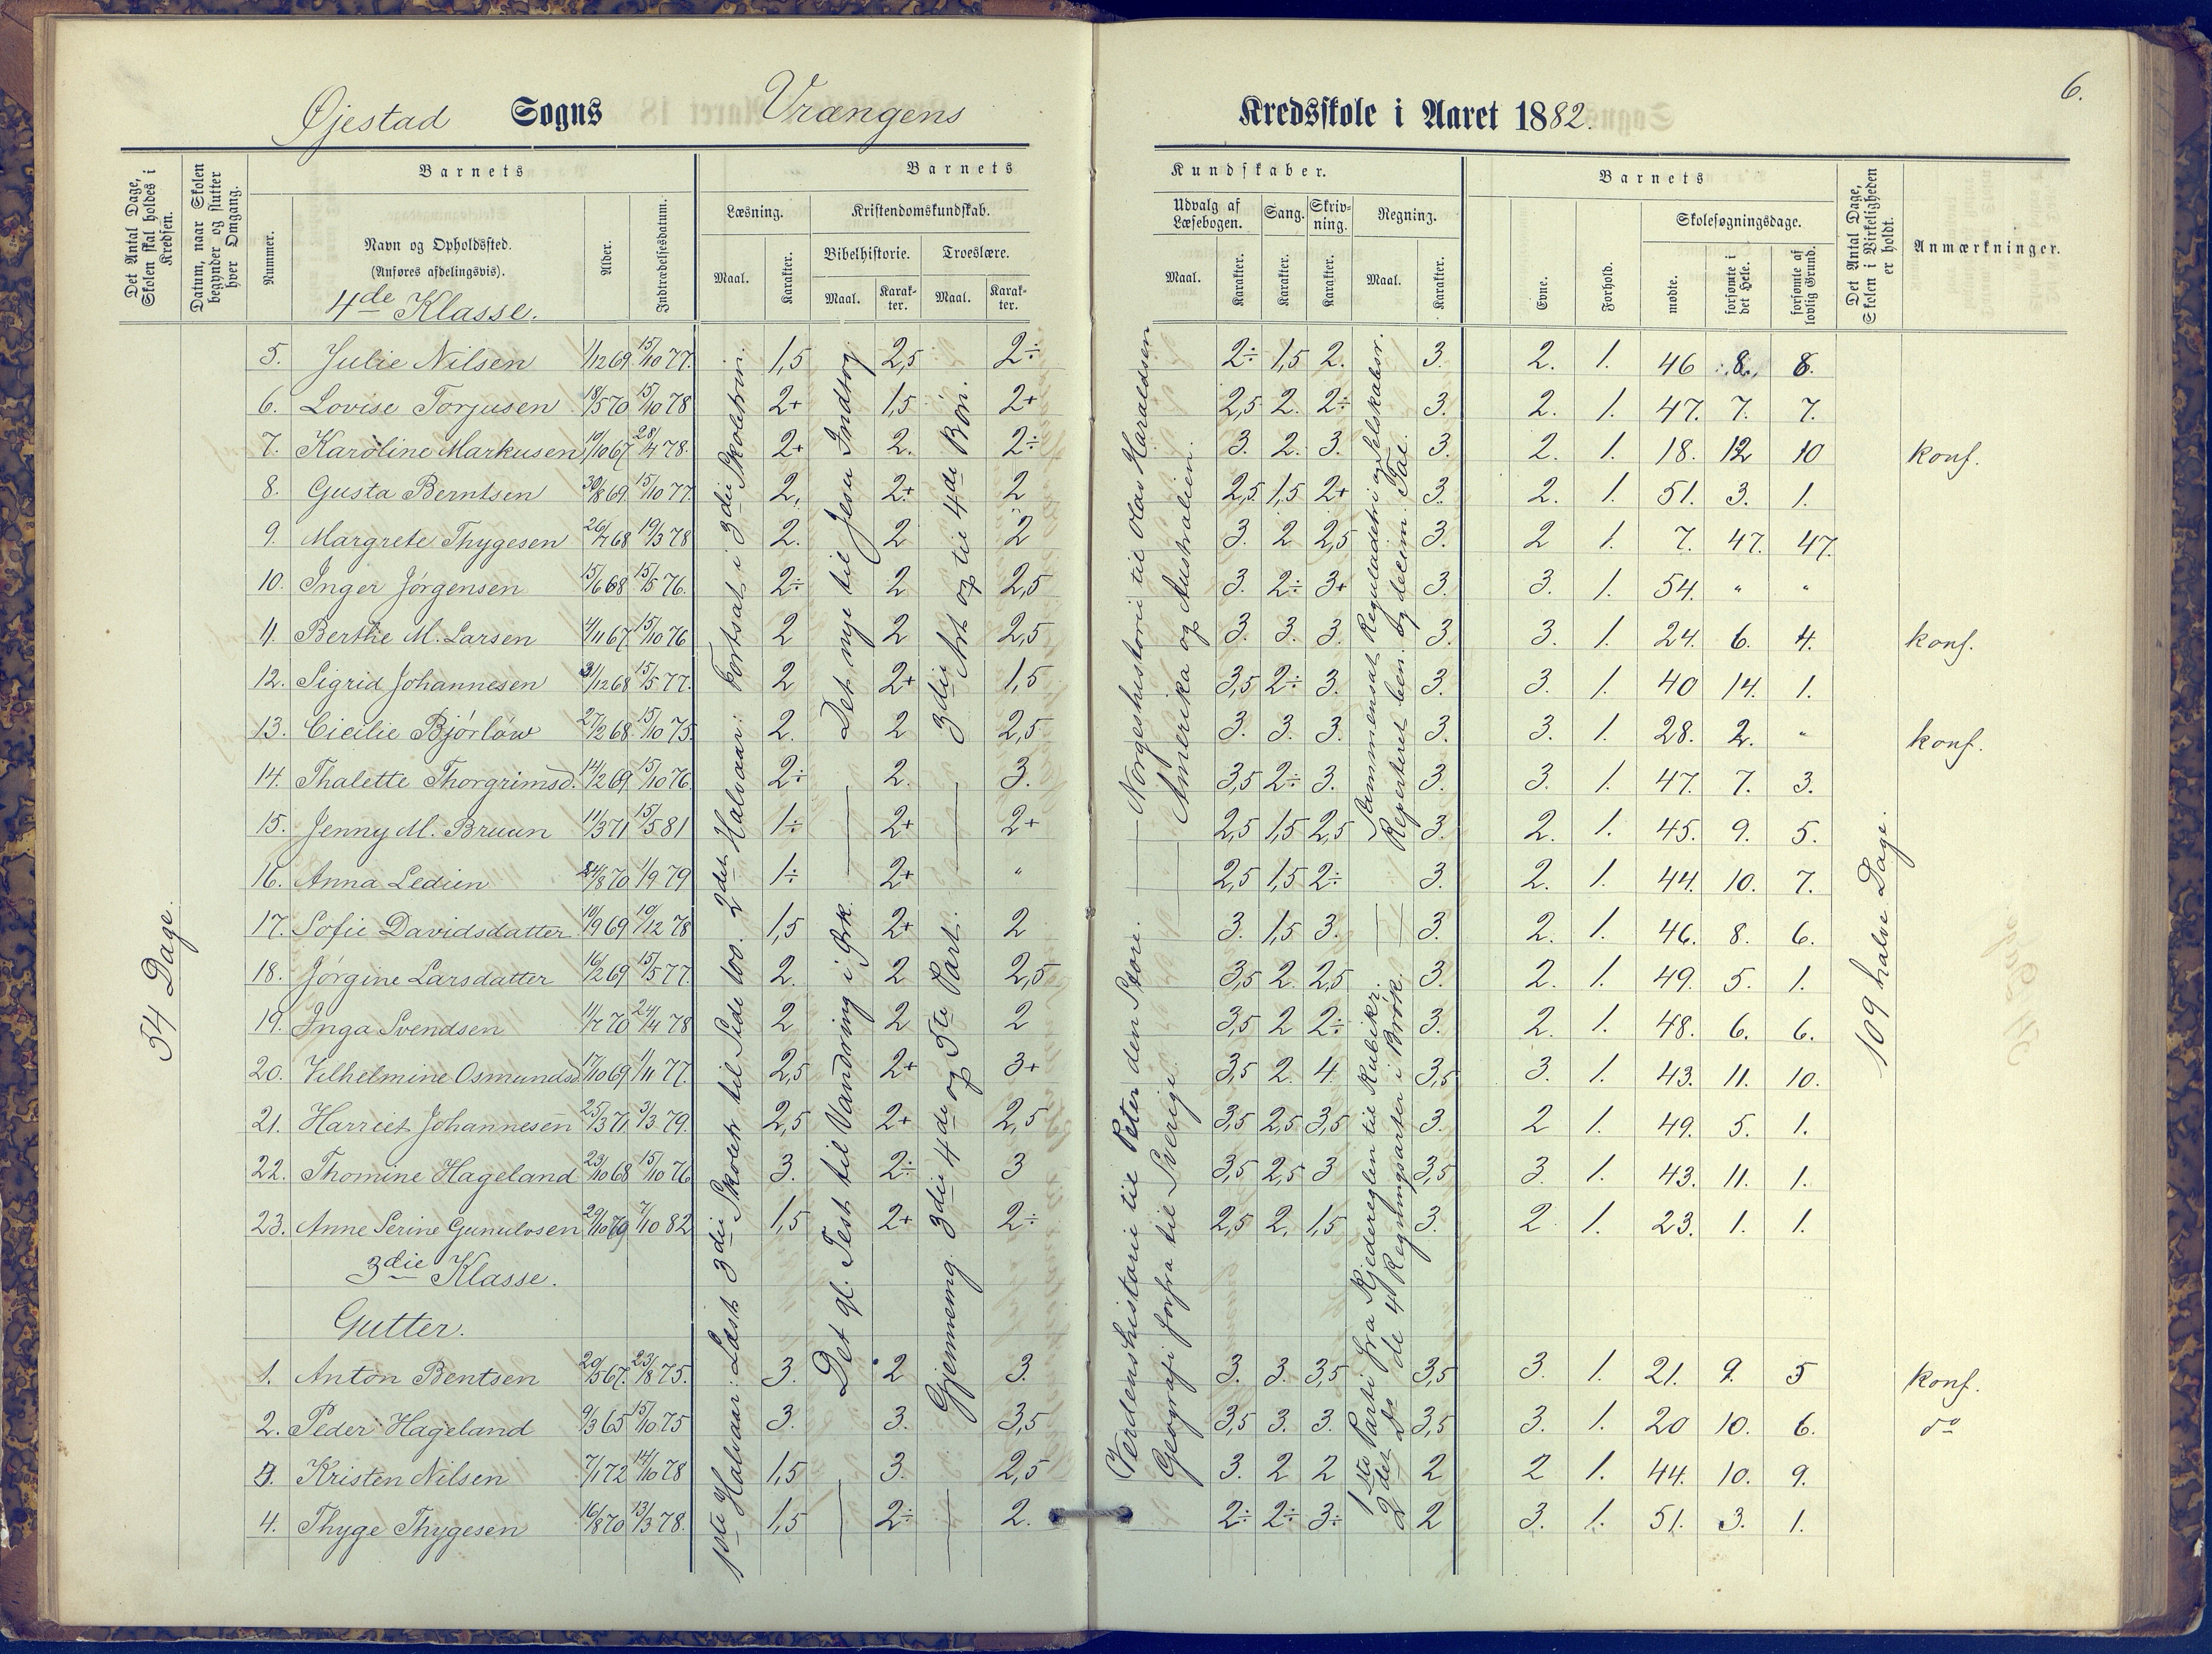 6.
Øjestad Sogns Vrængens Kredsskole i Aaret 1882.
Det Antal Dage, Skolen skal holdes i Kredsen.
Datum, naar Skolen begynder og slutter hver Omgang.
Barnets
Nummer.
Navn og Opholdsfted.
(Anføres afdelingsvis).
Alder.
Indtrædelsesdatum.
Barnets Kundskaber.
Læsning. Kristendomskundskab.
Bibelhistorie. Troeslære.
Maal. Karakter. Maal. Karakter. Maal. Karakter.
Udvalg af Læsebogen. Sang. Skrivning. Regning.
Maal. Karakter. Karakter. Karakter. Maal. Karakter.
Barnets
Evne. Forhold. Skolesøgningsdage.
mødte. forsømte i det Hele. forsømte af lovlig Grund.
Det Antal Dage, Skolen i Virkeligheden er holdt.
Anmærkninger.
4de Klasse.
5. Julie Nilsen 1/12 69 15/10 77. 1,5 2,5 2÷ 2÷ 1,5 2. 3. 2. 1. 46 8. 8.
6. Lovise Torjusen 18/5 70 15/10 78 2+ 1,5 2+ 2,5 2. 2÷ 3. 2. 1. 47. 7. 7.
7. Karoline Markusen 10/10 67 28/4 78. 2+ 2. 2÷ 3. 2. 3. 3. 2. 1. 18. 12 10 konf.
8. Gusta Berntsen 30/8 69. 15/10 77 2. 2+ 2 2,5 1,5 2+ 3. 2. 1. 51. 3. 1.
9. Margrete Thygesen 26/7 68 19/3 78 2. 2 2 3. 2 2,5 3. 2 1. 7. 47. 47.
10. Inger Jørgensen 15/6 68 15/5 76. 2÷ 2 2,5 3. 2÷ 3+ 3. 3. 1. 54. " "
11. Berthe M. Larsen 4/11 67 15/10 76 2 2 2,5 3. 3. 3. 3. 3. 1. 24. 6. 4. konf.
12. Sigrid Johannesen 3/12 68 15/5 77. 2 2+ 1,5 3,5 2÷ 3. 3. 3. 1. 40 14. 1.
13. Cicilie Bjørløw 27/2 68. 15/10 75. 2. 2 2,5 3. 3. 3. 3. 3. 1. 28. 2. " konf.
14. Thalette Thorgrimsd. 14/2 69. 15/10 76. 2÷ 2. 3. 3,5 2÷ 3. 3. 3. 1. 47. 7. 3.
15. Jenny M. Bruun 11/3 71 15/5 81 1÷ 2+ 2+ 2,5 1,5 2,5 3. 2. 1. 45. 9. 5.
16. Anna Ledien 24/8 70 1/9 79 1÷ 2+ " 2,5 1,5 2÷ 3. 2. 1. 44. 10. 7.
17. Sofie Davidsdatter 10/9 69 10/12 78 1,5 2+ 2 3. 1,5 3. 3. 2. 1. 46. 8. 6.
18. Jørgine Larsdatter 16/2 69 15/5 77. 2. 2 2,5 3,5 2 2,5 3. 2. 1. 49. 5. 1.
19. Inga Svendsen 11/7 70 24/4 78 2 2 2 3,5 2 2÷ 3. 2. 1. 48. 6. 6.
20. Vilhelmine Osmundsd. 17/10 69 1/11 77. 2,5 2+ 3+ 3,5 2. 4. 3,5 3. 1. 43. 11. 10.
21. Harriet Johannesen 25/3 71 3/3 79. 2,5 2+ 2,5 3,5 2,5 3,5 3. 2 1. 49. 5. 1.
22. Thomine Hageland 23/10 68 15/10 76 3. 2÷ 3 3,5 2,5 3 3,5 3. 1. 43. 11. 1.
23. Anne Serine Gunulvsen 7/10 82 1,5 2+ 2÷ 2,5 2. 1,5 3. 2 1. 23. 1. 1.
3die Klasse.
Gutter.
1. Anton Bentsen 20/5 67. 23/8 75. 3. 2 3. 3. 3. 3,5 3,5 3. 1. 21. 9. 5 konf.
2. Peder Hageland 9/3 65 15/10 75 3. 3. 3,5 3,5 3. 3. 3,5 3. 1. 20 10. 6. do
3. Kristen Nilsen 7/1 72 14/10 78 1,5 3. 2,5 3. 2 2 2 2 1. 44. 10. 9.
4. Thyge Thygesen 16/8 70 13/3 78. 1,5 2÷ 2. 2÷ 2÷ 3÷ 2 3. 1. 51. 3. 1.
54 Dage.
1ste Halvaar: Læst 3die Skoletr til Side 100. 2det Halvaar: Fortsat i 3die Skoletrin.
Det gl. Test til Vandring i Ørk. Det nye til Jesu Indtog.
Gjennemg. 3die 4de og 5te Part. 3die Art op til 4de Bøn.
Verdenshistorie til Peter den Store. — Norgeshistorie til Olav Haraldsen
Geografi forfra til Sverige. — Amerika og Australien.
1ste Parti fra Kjedereglen til Kubikr. Sammensat Reguladetri og Selskabsr.
2det do de 4 Regningsarter i Brøk. Repeteret ben. og decim. Tal.
109 halve Dage.